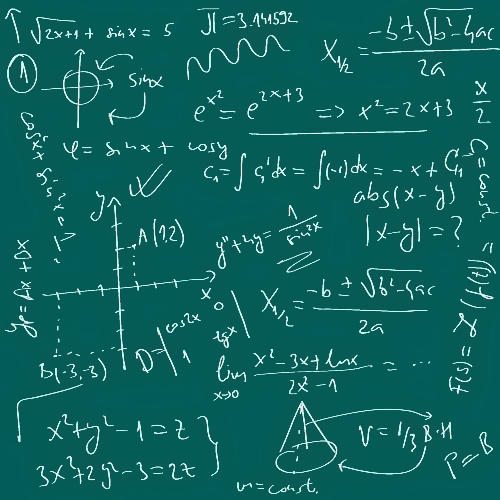 √2x+1 + sinx = 5
π = 3.141592
x₁/₂ = -b ± √b²-4ac / 2a
1
sinx
e^x² = e^2x+3 => x² = 2x+3
x/2
cosx²
φ = sinx + cosy
C₁ = ∫ C₁'dx = ∫(-1)dx = -x + C₁
C = const
abs(x-y)
|x-y| = ?
y
A(1,2)
y" + 4y = 1 / sin2x
x
yp = Ax + Dx
0
x₁/₂ = -b ± √b²-4ac / 2a
D = cos2x
tgx
1
B(-3,-3)
lim x→0 x²-3x+lnx / 2x²-1 = ...
x²+y²-1 = z
3x²+2y²-3 = 2z
V = 1/3 B·H
P = B
m = const,